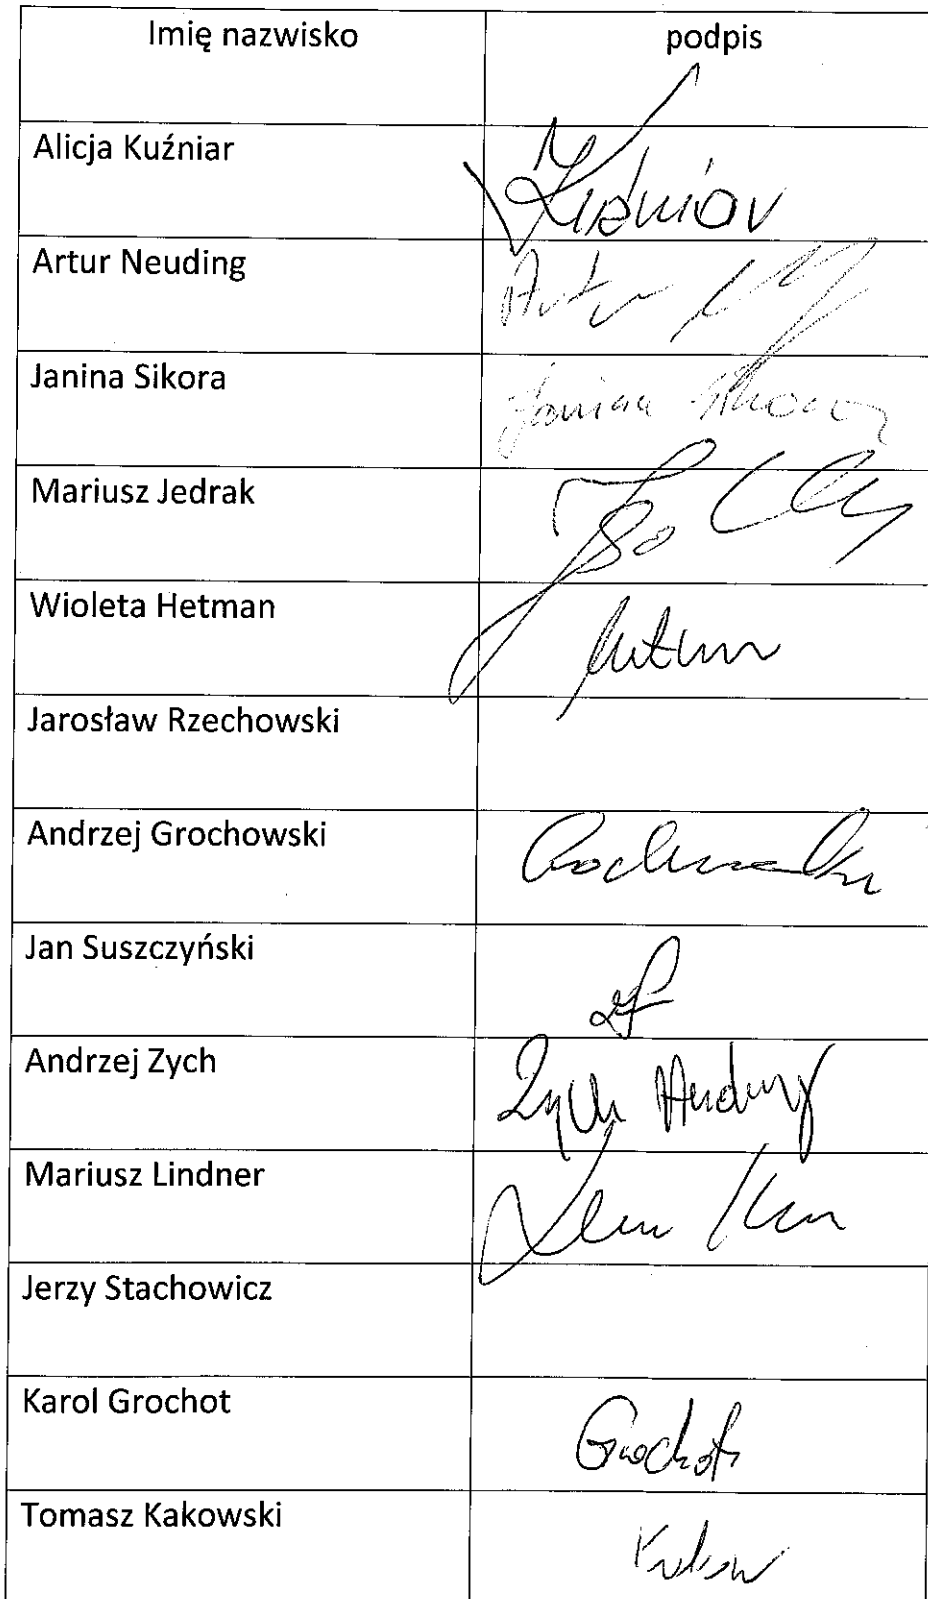 Imię nazwisko podpis
Alicja Kuźniar Kuźniar
Artur Neuding Artur
Janina Sikora Janina Sikora
Mariusz Jedrak
Wioleta Hetman
Jarosław Rzechowski
Andrzej Grochowski
Jan Suszczyński
Andrzej Zych Zych Andrzej
Mariusz Lindner
Jerzy Stachowicz
Karol Grochot Grochot
Tomasz Kakowski